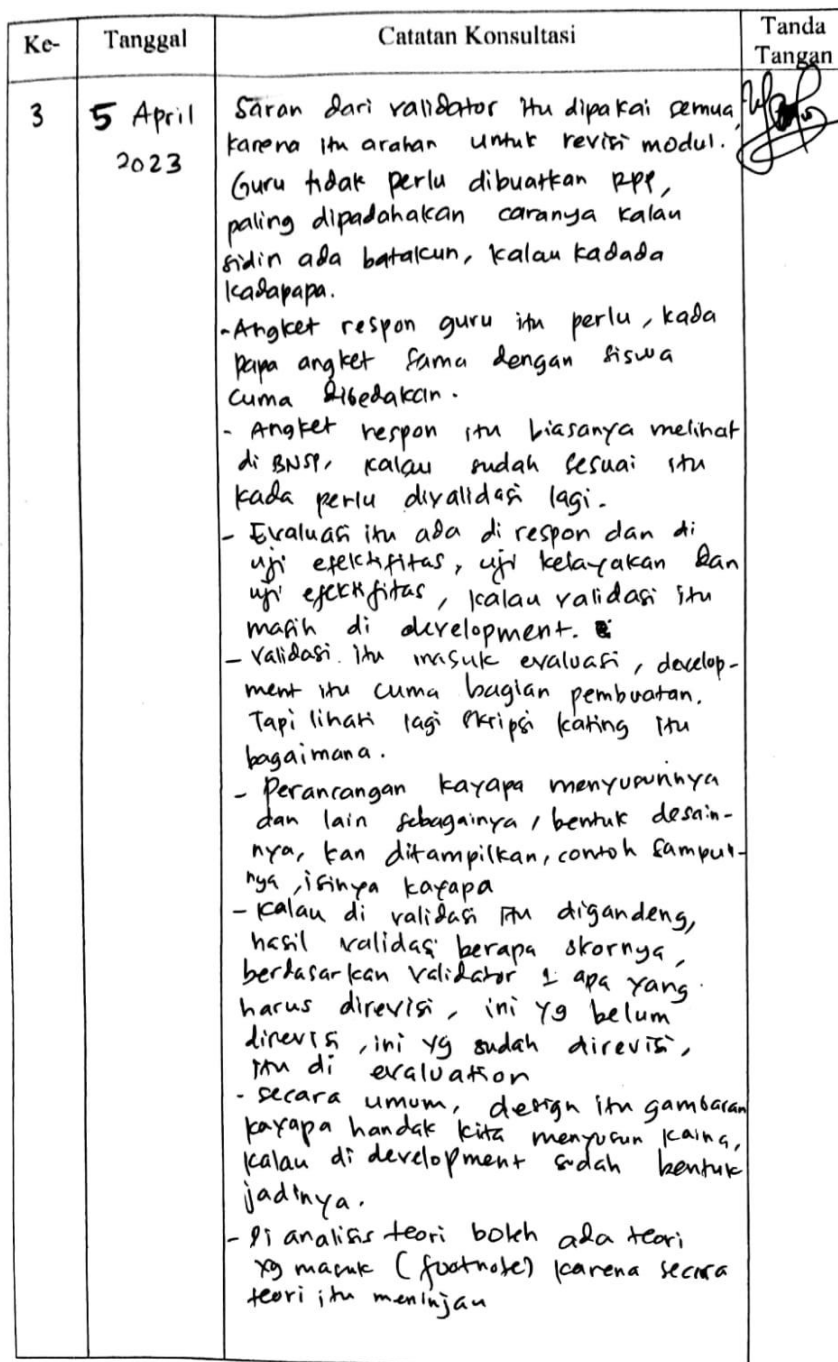 Ke-
Tanggal
Catatan Konsultasi
Tanda
Tangan
3
5 April
2023
Saran dari validator itu dipakai semua,
karena itu arahan untuk revisi modul.
Guru tidak perlu dibuatkan RPP,
paling dipadahakan caranya kalau
sidin ada batakun, kalau kadada
kadapapa.
- Angket respon guru itu perlu, kada
papa angket sama dengan siswa
cuma dibedakan.
- Angket respon itu biasanya melihat
di BNSP, kalau sudah sesuai itu
kada perlu divalidasi lagi.
- Evaluasi itu ada di respon dan di
uji efektifitas, uji kelayakan dan
uji efektifitas, kalau validasi itu
masih di development.
- Validasi itu masuk evaluasi, develop-
ment itu cuma bagian pembuatan.
Tapi lihati lagi skripsi kating itu
bagaimana.
- Perancangan kayapa menyusunnya
dan lain sebagainya, bentuk desain-
nya, kan ditampilkan, contoh sampul-
nya, isinya kayapa
- Kalau di validasi itu digandeng,
hasil validasi berapa skornya,
berdasarkan validator 1 apa yang
harus direvisi, ini yg belum
direvisi, ini yg sudah direvisi,
itu di evaluation
- secara umum, design itu gambaran
kayapa handak kita menyusun kaina,
kalau di development sudah bentuk
jadinya.
- Di analisis teori boleh ada teori
yg masuk (footnote) karena secara
teori itu meninjau